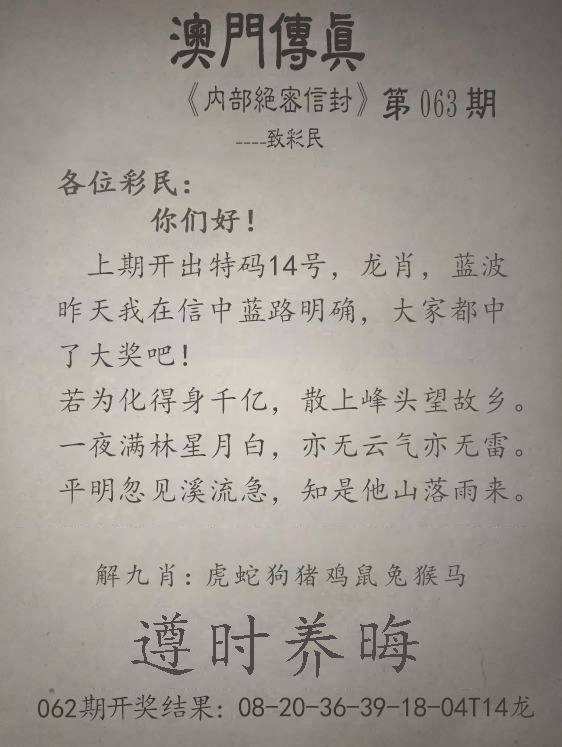 澳門傳眞
《内部絕密信封》第063期
----致彩民
各位彩民：
你们好！
上期开出特码14号，龙肖，蓝波
昨天我在信中蓝路明确，大家都中
了大奖吧！
若为化得身千亿，散上峰头望故乡。
一夜满林星月白，亦无云气亦无雷。
平明忽见溪流急，知是他山落雨来。
解九肖：虎蛇狗猪鸡鼠兔猴马
遵时养晦
062期开奖结果：08-20-36-39-18-04T14龙